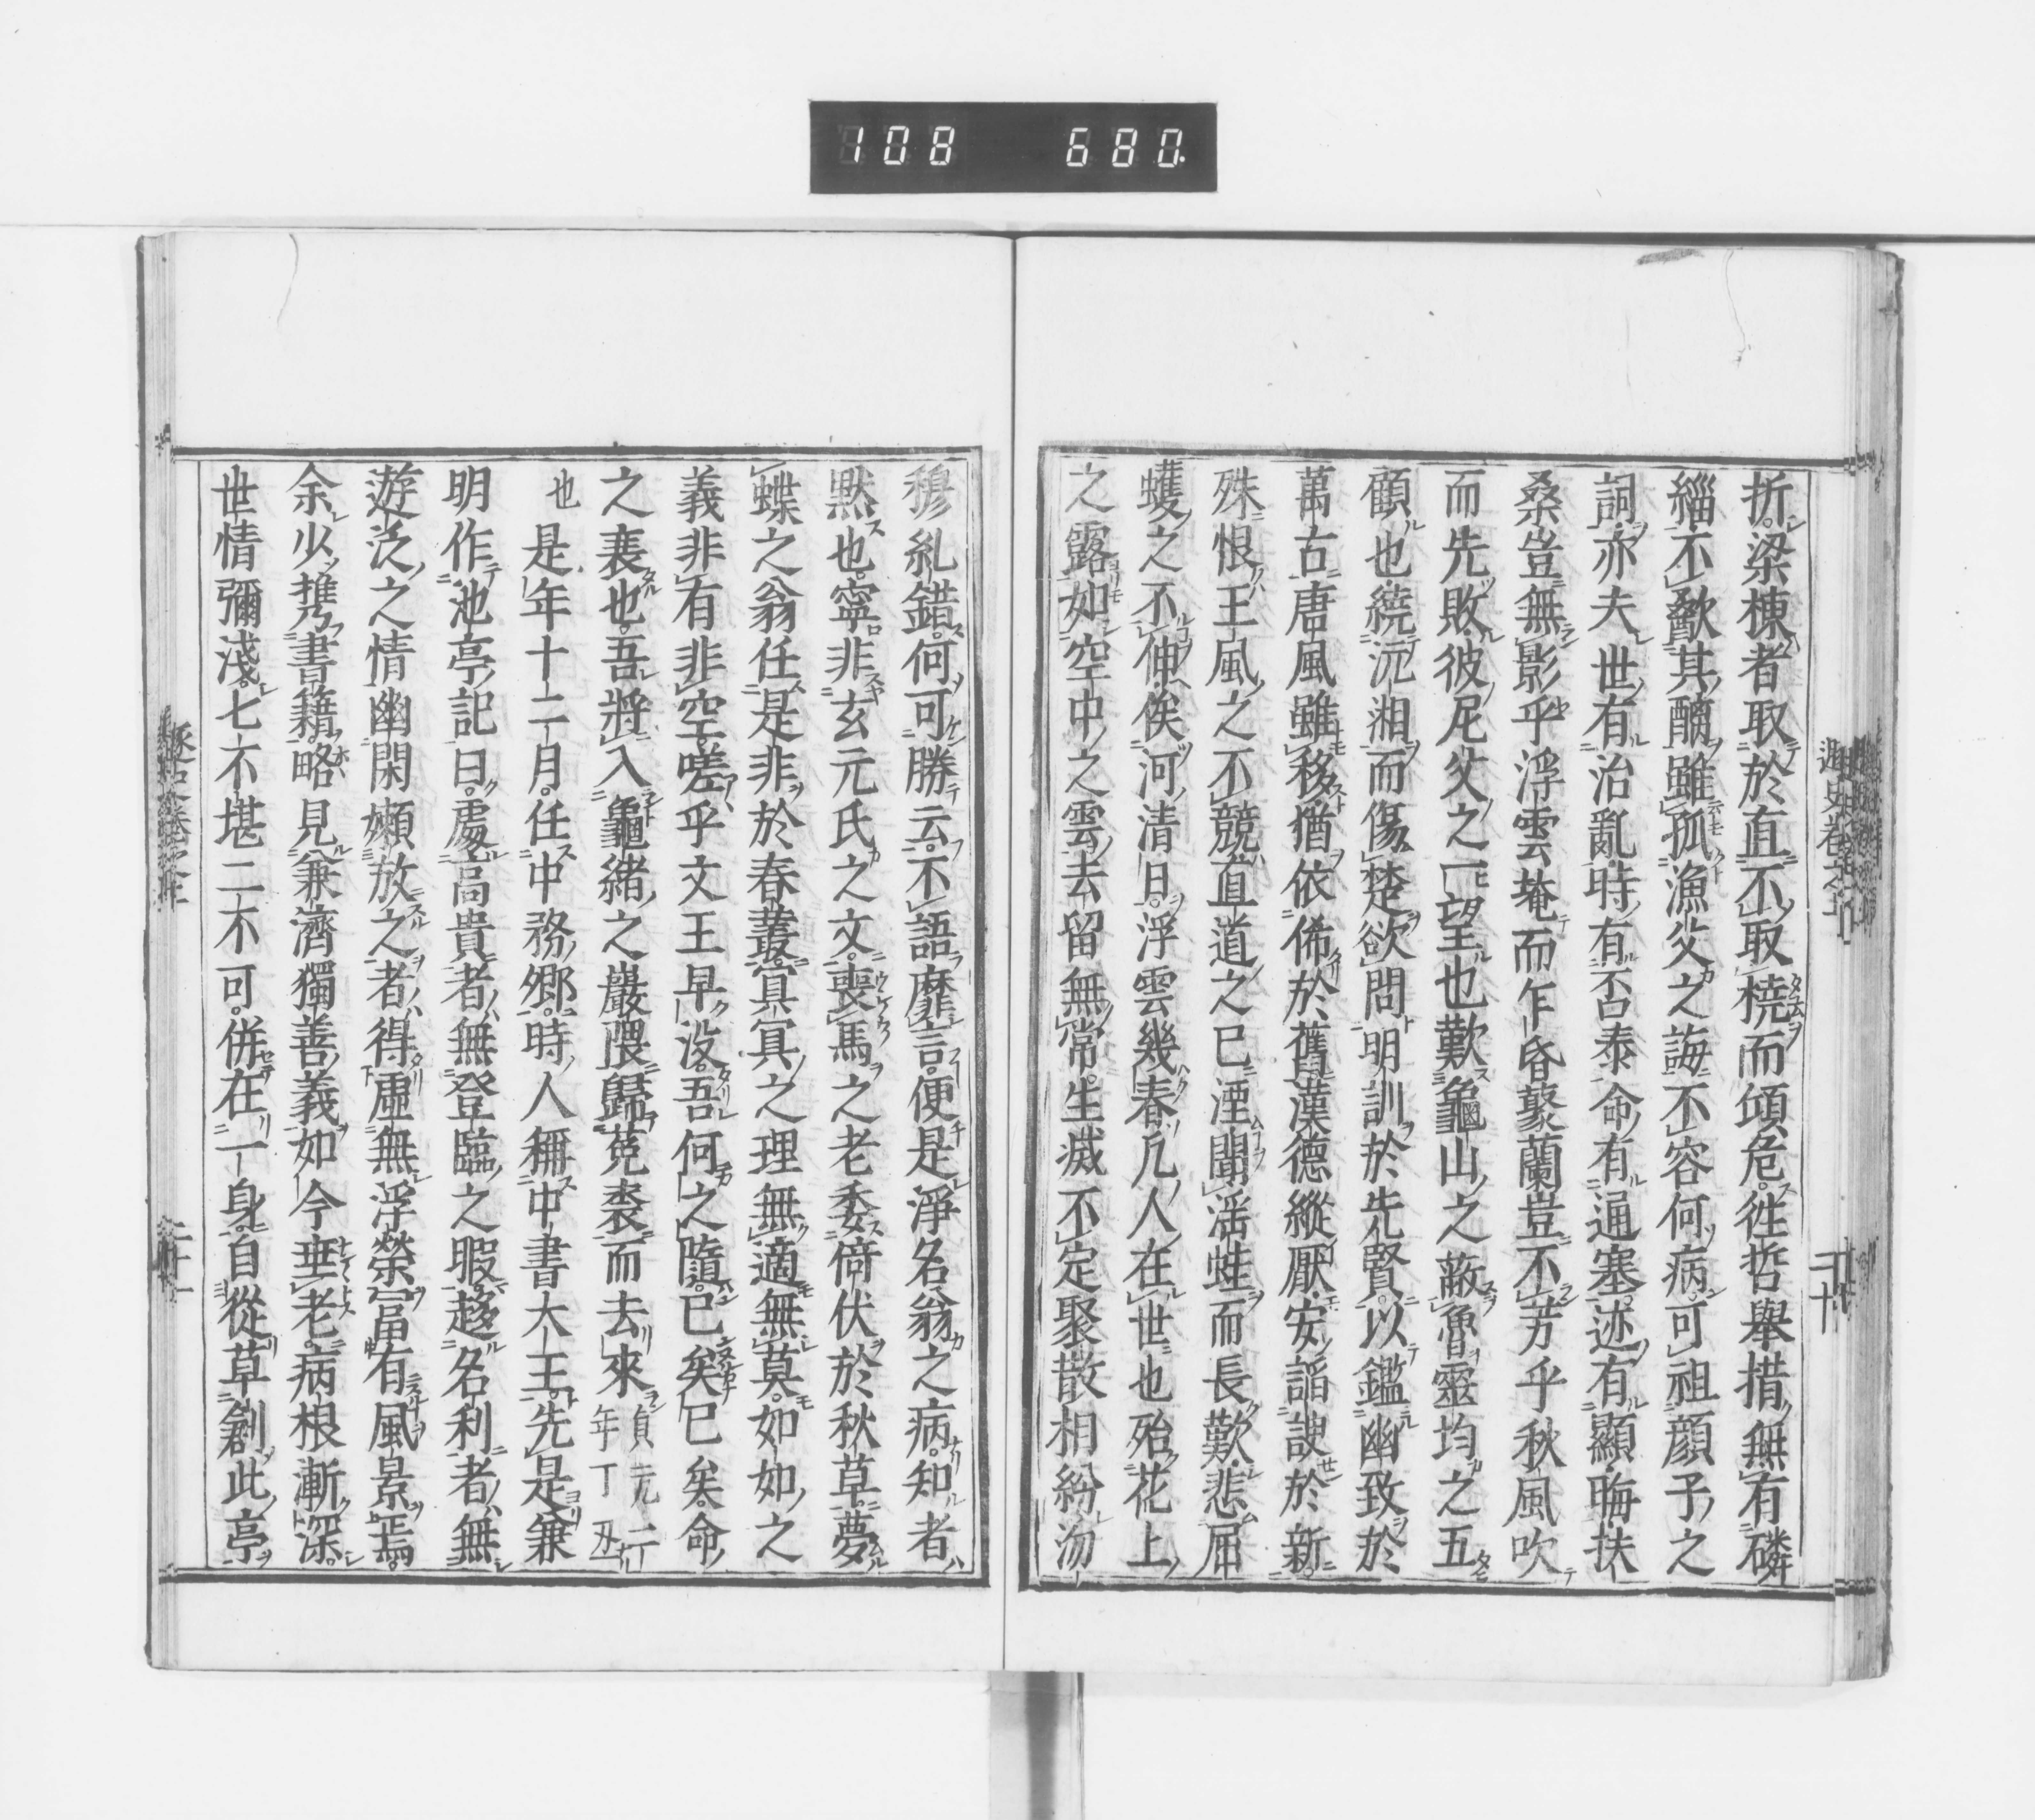 108 680
折。梁棟者取於直。不取橈而傾危。往哲舉措。無有磷
緇。不歠其醨。雖孤漁父之誨。不容何病。可祖顔子之
詞。亦夫世有治亂。時有否泰。命有通塞。述有顯晦。扶
桑豈無影乎。浮雲掩而乍昏。蘂蘭豈不芳乎。秋風吹
而先敗。彼尼父之一望也。歎龜山之蔽魯。靈均之五
顧也。繞沅湘而傷楚。欲問明訓於先賢。以鑑幽致於
萬古。唐風雖移。猶依俙於舊。漢德縱厭。安諂諛於新。
殊恨王風之不競。直道之已湮。聞淫蛙而長歎。悲屈
蠖之不伸。俟河清日。浮雲幾春。凡人在世也。殆花上
之露。如空中之雲。去留無常。生滅不定。聚散相紛。沕
穆糺錯。何可勝云。不語靡言。便是淨名翁之病。知者
默也。寧非玄元氏之文。喪馬之老。委倚伏於秋草。夢
蝶之翁。任是非於春叢。冥冥之理。無適無莫。如如之
義。非有非空。嗟乎文王早沒。吾何之隨。已矣已矣。命
之衰也。吾將入龜緒之巖隈。歸菟裘而去來
貞元二年丁丑
也 是年十二月。任中務郷。時人稱中書大王。先是兼
明作池亭記曰。處高貴者。無登臨之暇。趍名利者。無
遊泛之情。幽閑嬾放之者。得虛無浮榮。富有風景焉。
余少携書籍。略見兼濟獨善義。如今垂老。病根漸深。
世情彌淺。七不堪二不可。併在一身。自從草創此亭